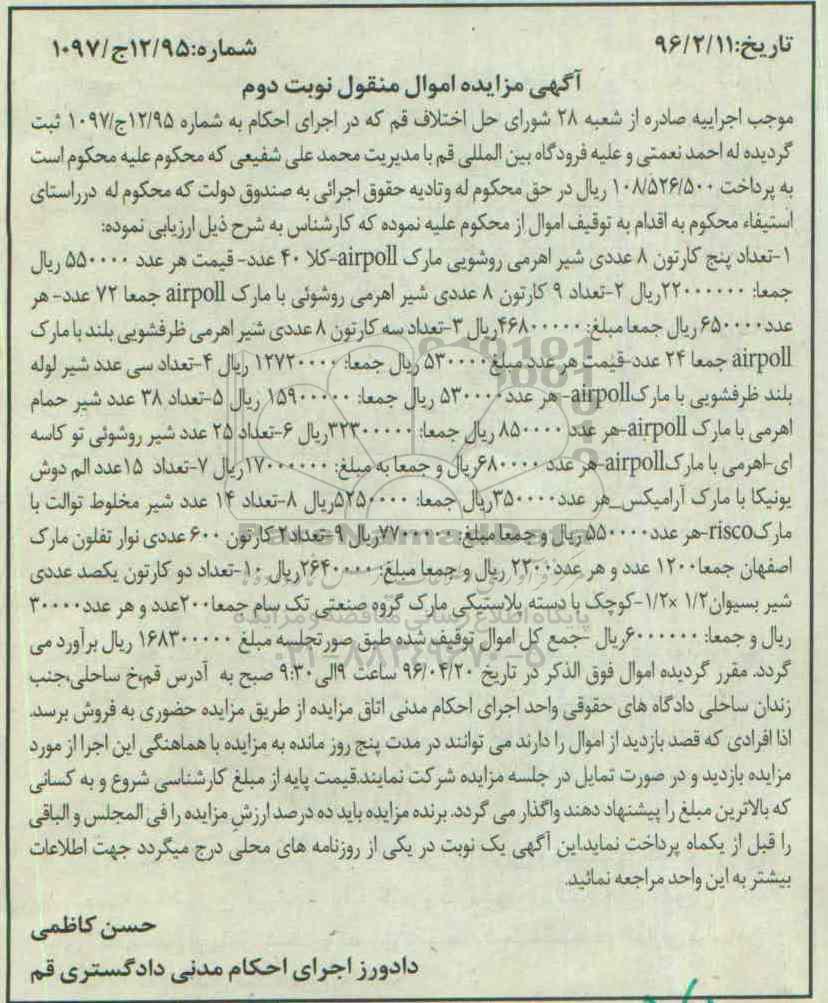 تاریخ:۹۶/۲/۱۱
شماره:۱۲/۹۵ج/۱۰۹۷
آگهی مزایده اموال منقول نوبت دوم
موجب اجراییه صادره از شعبه ۲۸ شورای حل اختلاف قم که در اجرای احکام به شماره ۱۲/۹۵ج/۱۰۹۷ ثبت
گردیده له احمد نعمتی و علیه فرودگاه بین المللی قم با مدیریت محمد علی شفیعی که محکوم علیه محکوم است
به پرداخت ۱۰۸/۵۲۶/۵۰۰ ریال در حق محکوم له وتادیه حقوق اجرائی به صندوق دولت که محکوم له درراستای
استیفاء محکوم به اقدام به توقیف اموال از محکوم علیه نموده که کارشناس به شرح ذیل ارزیابی نموده:
۱-تعداد پنج کارتون ۸ عددی شیر اهرمی روشویی مارک airpoll-کلا ۴۰ عدد- قیمت هر عدد ۵۵۰۰۰۰ ریال
جمعا: ۲۲۰۰۰۰۰۰ریال ۲-تعداد ۹ کارتون ۸ عددی شیر اهرمی روشوئی با مارک airpoll جمعا ۷۲ عدد- هر
عدد۶۵۰۰۰۰ ریال جمعا مبلغ: ۴۶۸۰۰۰۰۰ریال ۳-تعداد سه کارتون ۸ عددی شیر اهرمی ظرفشویی بلند با مارک
airpoll جمعا ۲۴ عدد-قیمت هر عدد مبلغ ۵۳۰۰۰۰ ریال جمعا: ۱۲۷۲۰۰۰۰ ریال ۴-تعداد سی عدد شیر لوله
بلند ظرفشویی با مارکairpoll- هر عدد ۵۳۰۰۰۰ ریال جمعا: ۱۵۹۰۰۰۰۰ ریال ۵-تعداد ۳۸ عدد شیر حمام
اهرمی با مارک airpoll-هر عدد ۸۵۰۰۰۰ ریال جمعا: ۳۲۳۰۰۰۰۰ریال ۶-تعداد ۲۵ عدد شیر روشوئی تو کاسه
ای-اهرمی با مارکairpoll-هر عدد ۶۸۰۰۰۰ریال و جمعا به مبلغ: ۱۷۰۰۰۰۰۰ریال ۷-تعداد ۱۵عدد الم دوش
یونیکا با مارک آرامیکس_هر عدد۳۵۰۰۰۰ریال جمعا: ۵۲۵۰۰۰۰ریال ۸-تعداد ۱۴ عدد شیر مخلوط توالت با
مارکrisco-هر عدد۵۵۰۰۰۰ ریال و جمعا مبلغ: ۷۷۰۰۰۰۰ریال ۹-تعداد۲ کارتون ۶۰۰ عددی نوار تفلون مارک
اصفهان جمعا۱۲۰۰ عدد و هر عدد۲۲۰۰ ریال و جمعا مبلغ: ۲۶۴۰۰۰۰ریال ۱۰-تعداد دو کارتون یکصد عددی
شیر بسیوان۱/۲ ×۱/۲-کوچک با دسته پلاستیکی مارک گروه صنعتی تک سام جمعا۲۰۰عدد و هر عدد۳۰۰۰۰
ریال و جمعا: ۶۰۰۰۰۰۰ریال -جمع کل اموال توقیف شده طبق صورتجلسه مبلغ ۱۶۸۳۰۰۰۰۰ ریال برآورد می
گردد. مقرر گردیده اموال فوق الذکر در تاریخ ۹۶/۰۴/۲۰ ساعت ۹الی۹:۳۰ صبح به آدرس قم،خ ساحلی،جنب
زندان ساحلی دادگاه های حقوقی واحد اجرای احکام مدنی اتاق مزایده از طریق مزایده حضوری به فروش برسد.
اذا افرادی که قصد بازدید از اموال را دارند می توانند در مدت پنج روز مانده به مزایده با هماهنگی این اجرا از مورد
مزایده بازدید و در صورت تمایل در جلسه مزایده شرکت نمایند.قیمت پایه از مبلغ کارشناسی شروع و به کسانی
که بالاترین مبلغ را پیشنهاد دهند واگذار می گردد. برنده مزایده باید ده درصد ارزش مزایده را فی المجلس و الباقی
را قبل از یکماه پرداخت نماید.این آگهی یک نوبت در یکی از روزنامه های محلی درج میگردد جهت اطلاعات
بیشتر به این واحد مراجعه نمائید.
حسن کاظمی
دادورز اجرای احکام مدنی دادگستری قم